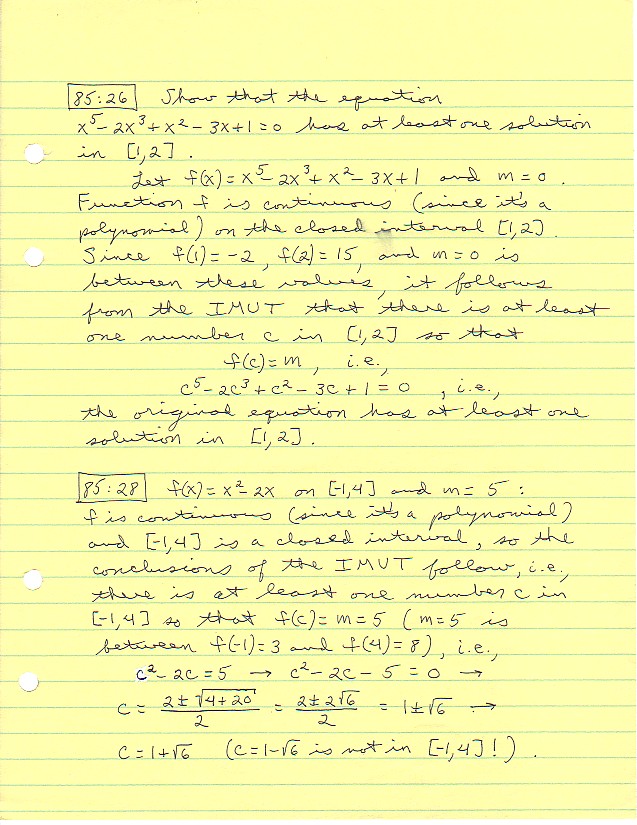 85:26 Show that the equation
x⁵- 2x³+ x² - 3x+1 = 0 has at least one solution
in [1,2] .
Let f(x) = x⁵- 2x³+ x²- 3x+1 and m = 0 .
Function f is continuous (since it's a
polynomial) on the closed interval [1,2] .
Since f(1) = -2 , f(2) = 15 , and m = 0 is
between these values, it follows
from the IMVT that there is at least
one number c in [1,2] so that
f(c) = m , i.e.,
c⁵- 2c³+ c² - 3c + 1 = 0 , i.e.,
the original equation has at least one
solution in [1,2] .
85:28 f(x) = x²- 2x on [-1,4] and m = 5 :
f is continuous (since it's a polynomial)
and [-1,4] is a closed interval, so the
conclusions of the IMVT follow, i.e.,
there is at least one number c in
[-1,4] so that f(c) = m = 5 ( m = 5 is
between f(-1) = 3 and f(4) = 8) , i.e.,
c²- 2c = 5 → c²- 2c - 5 = 0 →
c = (2 ± √(4+20))/2 = (2 ± 2√6)/2 = 1 ± √6 →
c = 1+√6 (c = 1-√6 is not in [-1,4] ! ) .